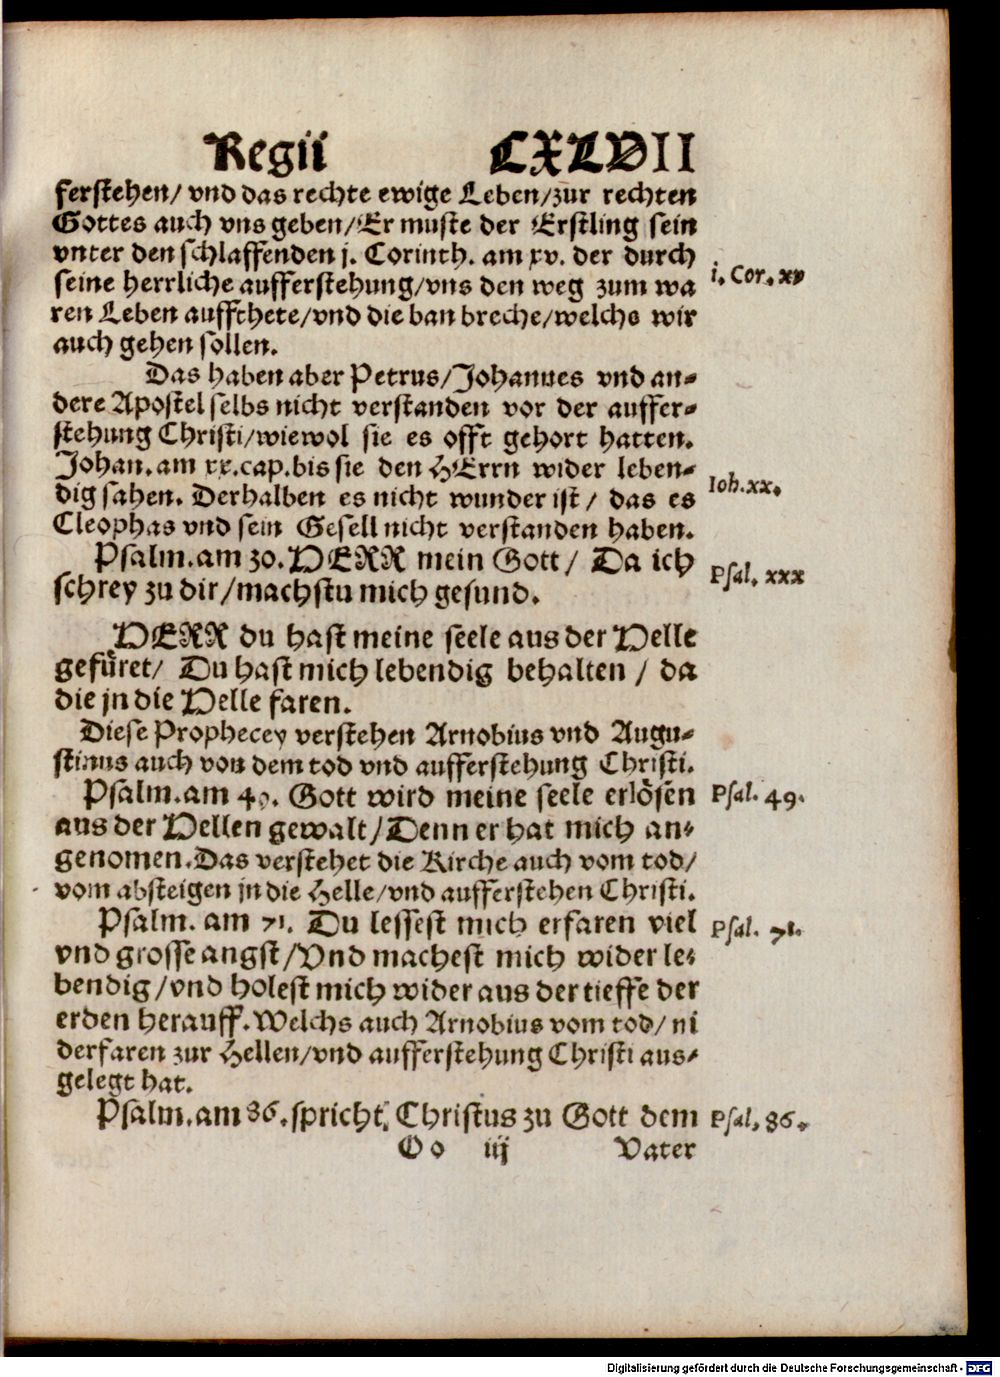 Regii CXLVII
ferstehen/ vnd das rechte ewige Leben/zur rechten
Gottes auch vns geben/Er muste der Erstling sein
vnter den schlaffenden j. Corinth. am xv. der durch
i. Cor. xv
seine herrliche aufferstehung/vns den weg zum wa
ren Leben auffthete/vnd die ban breche/welche wir
auch gehen sollen.
Das haben aber Petrus/Johannes vnd an-
dere Apostel selbs nicht verstanden vor der auffer-
stehung Christi/wiewol sie es offt gehort hatten.
Johan. am xx. cap. bis sie den HErrn wider leben-
Ioh. xx.
dig sahen. Derhalben es nicht wunder ist/ das es
Cleophas vnd sein Gesell nicht verstanden haben.
Psalm. am 30. HERR mein Gott/ Da ich
Psal. xxx
schrey zu dir/machstu mich gesund.
HERR du hast meine seele aus der Helle
gefüret/ Du hast mich lebendig behalten / da
die jn die Helle faren.
Diese Prophecey verstehen Arnobius vnd Augu-
stinus auch von dem tod vnd aufferstehung Christi.
Psalm. am 49. Gott wird meine seele erlösen
Psal. 49.
aus der Hellen gewalt/Denn er hat mich an-
genomen. Das verstehet die Kirche auch vom tod/
vom absteigen jn die Helle/vnd aufferstehen Christi.
Psalm. am 71. Du lessest mich erfaren viel
Psal. 71.
vnd grosse angst/Vnd machest mich wider le-
bendig/vnd holest mich wider aus der tieffe der
erden herauff. Welchs auch Arnobius vom tod/ ni
derfaren zur Hellen/vnd aufferstehung Christi aus-
gelegt hat.
Psalm. am 86. spricht Christus zu Gott dem
Psal. 86.
Oo iij Vater
Digitalisierung gefördert durch die Deutsche Forschungsgemeinschaft - DFG